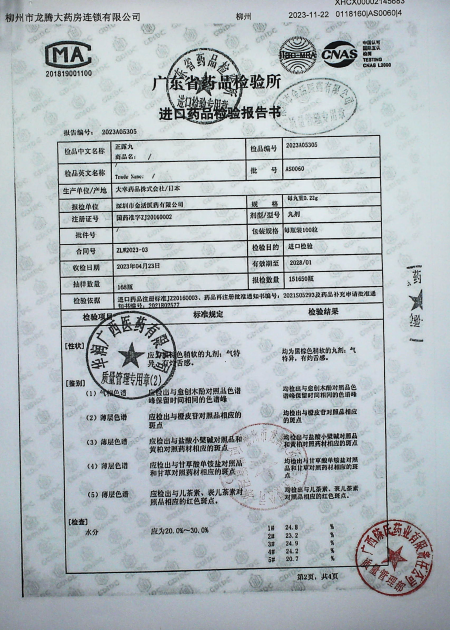 XHCX00002145683
柳州市龙腾大药房连锁有限公司 柳州 2023-11-22 0118160|AS0060|4
MA
201819001100
ilac-MRA
CNAS
TESTING
广东省药品检验所
进口药品检验报告书
报告编号: 2023A05305
检品中文名称 正露丸 检品编号 2023A05305
商品名: /
检品英文名称 / 批 号 AS0060
Trade Name: /
生产单位/产地 大幸药品株式会社/日本
报检单位 深圳市金活医药有限公司 规 格 每丸重0.22g
注册证号 国药准字ZJ20160002 剂型/型号 丸剂
批件号 / 包装规格 每瓶装100粒
合同号 ZLW2023-03 检验目的 进口检验
收检日期 2023年04月23日 有效期至 2028/01
抽样数量 168瓶 报检数量 151650瓶
检验依据 进口药品注册标准JZ20160003、药品再注册批准通知书编号:2021S05293及药品补充申请批准通
知书编号:
检验项目 标准规定 检验结果
[性状] 应为 棕色稍软的丸剂; 气 均为 棕色稍软的丸剂; 气
特异, 有灼舌感。 特异, 有灼舌感。
[鉴别]
(1) 气相色谱 应检出与愈创木酚对照品色谱 均检出与愈创木酚对照品色
峰保留时间相同的色谱峰 谱峰保留时间相同的色谱峰
(2) 薄层色谱 应检出与橙皮苷对照品相应的 均检出与橙皮苷对照品相应
斑点 的斑点
(3) 薄层色谱 应检出与盐酸小檗碱对照品和 均检出与盐酸小檗碱对照品
黄柏对照药材相应的斑点 和黄柏对照药材相应的斑点
(4) 薄层色谱 应检出与甘草酸单铵盐对照品 均检出与甘草酸单铵盐对照
和甘草对照药材相应的斑点 品和甘草对照药材相应的斑
点
(5) 薄层色谱 应检出与儿茶素、表儿茶素对 均检出与儿茶素、表儿茶素
照品相应的红色斑点 对照品相应的红色斑点。
[检查]
水分 应为20.0%~30.0% 1# 24.8 %
2# 23.2 %
3# 24.9 %
4# 24.2 %
5# 20.7 %
第2页, 共4页
华润广西医药有限公司
质量管理专用章(2)
广西陈氏药业有限责任公司
质量管理部